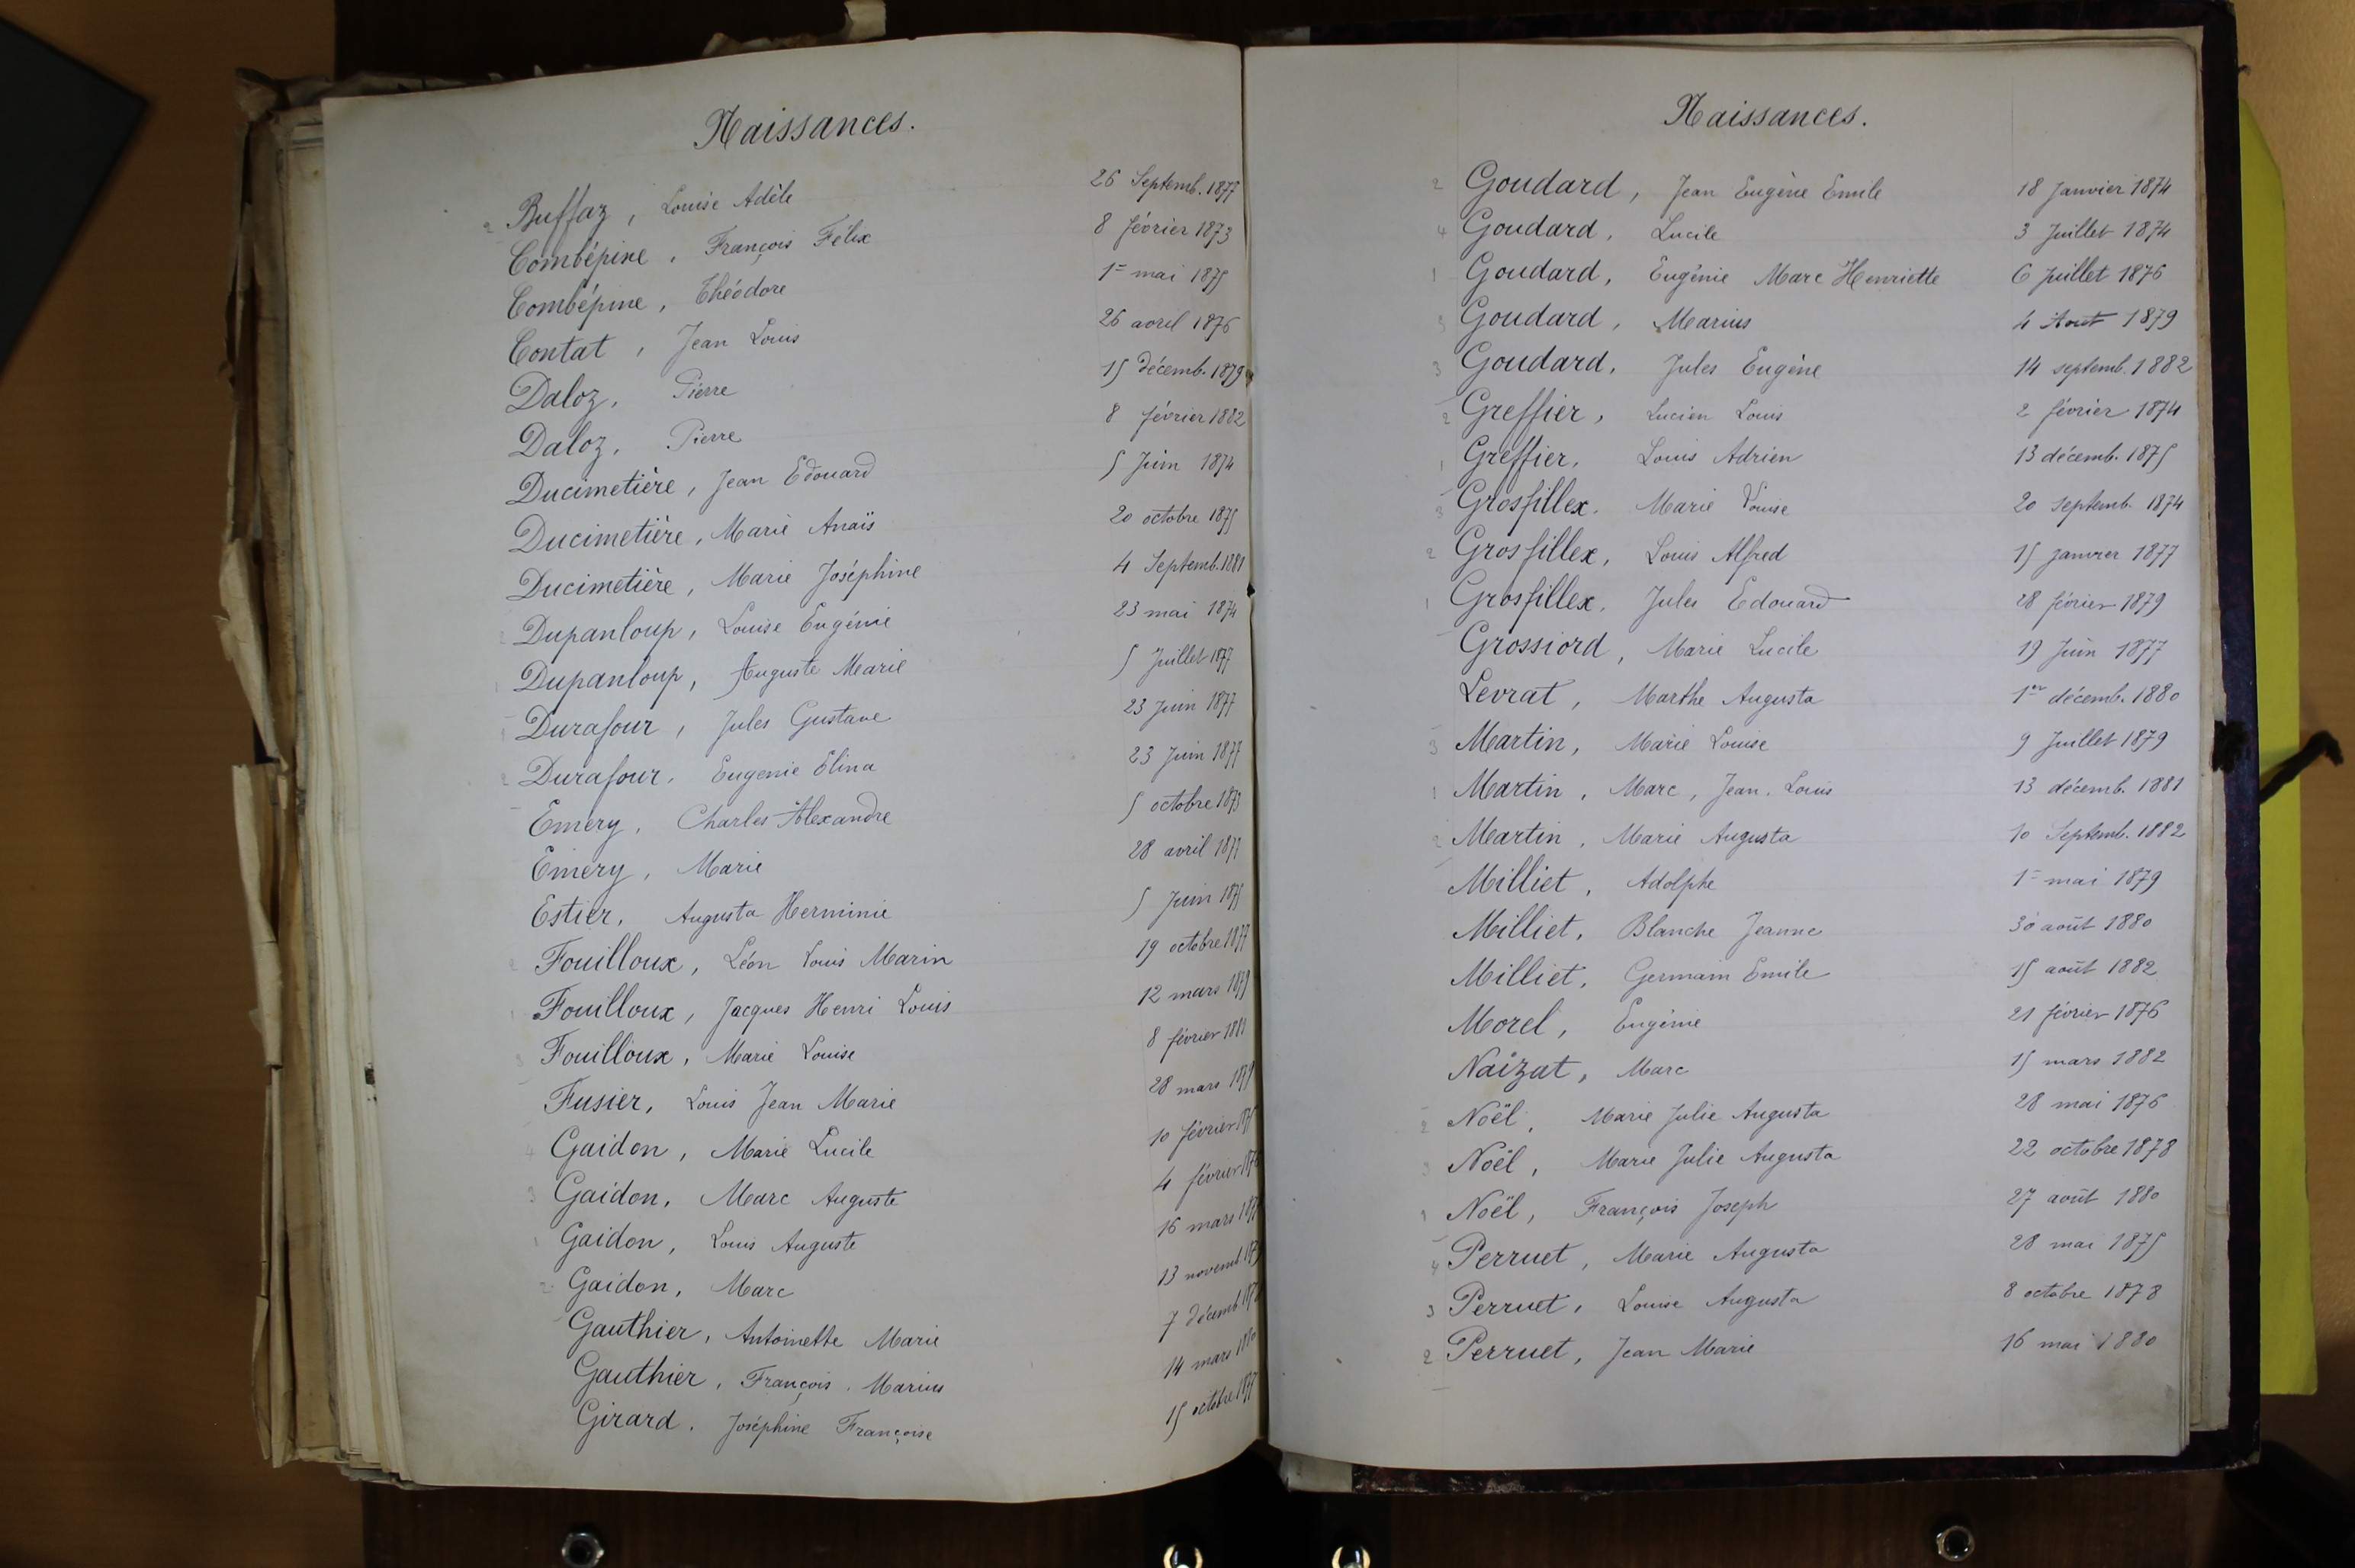 Naissances.
2 Buffaz, Louise Adèle 26 Septemb. 1877
Combépine, François Félix 8 février 1873
Combépine, Théodore 1er mai 1875
Contat, Jean Louis 26 avril 1876
Daloz, Pierre 15 décemb. 1879
Daloz, Pierre 8 février 1882
Ducimetière, Jean Edouard 5 Juin 1874
Ducimetière, Marie Anaïs 20 octobre 1875
Ducimetière, Marie Joséphine 4 Septemb. 1881
2 Dupanloup, Louise Eugénie 23 mai 1874
1 Dupanloup, Auguste Marie 5 Juillet 1877
1 Durafour, Jules Gustave 23 Juin 1877
2 Durafour, Eugenie Elina 23 Juin 1877
Emery, Charles Alexandre 5 octobre 1873
Emery, Marie 28 avril 1877
Estier, Augusta Herminie 5 Juin 1875
2 Fouilloux, Léon Louis Marin 19 octobre 1877
1 Fouilloux, Jacques Henri Louis 12 mars 1879
3 Fouilloux, Marie Louise 8 février 1881
Fusier, Louis Jean Marie 28 mars 1879
4 Gaidon, Marie Lucile 10 février
3 Gaidon, Marc Auguste 4 février
1 Gaidon, Louis Auguste 16 mars
2 Gaidon, Marc 13 novemb.
Gauthier, Antoinette Marie 7 décemb.
Gauthier, François, Marius 14 mars 1880
Girard, Joséphine Françoise 15 octobre 1877
Naissances.
2 Goudard, Jean Eugène Emile 18 Janvier 1874
4 Goudard, Lucile 3 Juillet 1874
1 Goudard, Eugénie Marc Henriette 6 Juillet 1876
5 Goudard, Marius 4 Aout 1879
3 Goudard, Jules Eugène 14 septemb. 1882
2 Greffier, Lucien Louis 2 février 1874
1 Greffier, Louis Adrien 13 décemb. 1875
3 Grosfillex, Marie Louise 20 septemb. 1874
2 Grosfillex, Louis Alfred 15 janvier 1877
1 Grosfillex, Jules Edouard 28 février 1879
Grossiord, Marie Lucile 19 Juin 1877
Levrat, Marthe Augusta 1er décemb. 1880
3 Martin, Marie Louise 9 Juillet 1879
1 Martin, Marc, Jean, Louis 13 décemb. 1881
2 Martin, Marie Augusta 10 Septemb. 1882
Milliet, Adolphe 1er mai 1879
Milliet, Blanche Jeanne 30 août 1880
Milliet, Germain Emile 15 août 1882
Morel, Eugénie 21 février 1876
Naizat, Marc 15 mars 1882
2 Noël, Marie Julie Augusta 28 mai 1876
3 Noël, Marie Julie Augusta 22 octobre 1878
1 Noël, François Joseph 27 août 1880
4 Perruet, Marie Augusta 28 mai 1875
3 Perruet, Louise Augusta 8 octobre 1878
2 Perruet, Jean Marie 16 mai 1880